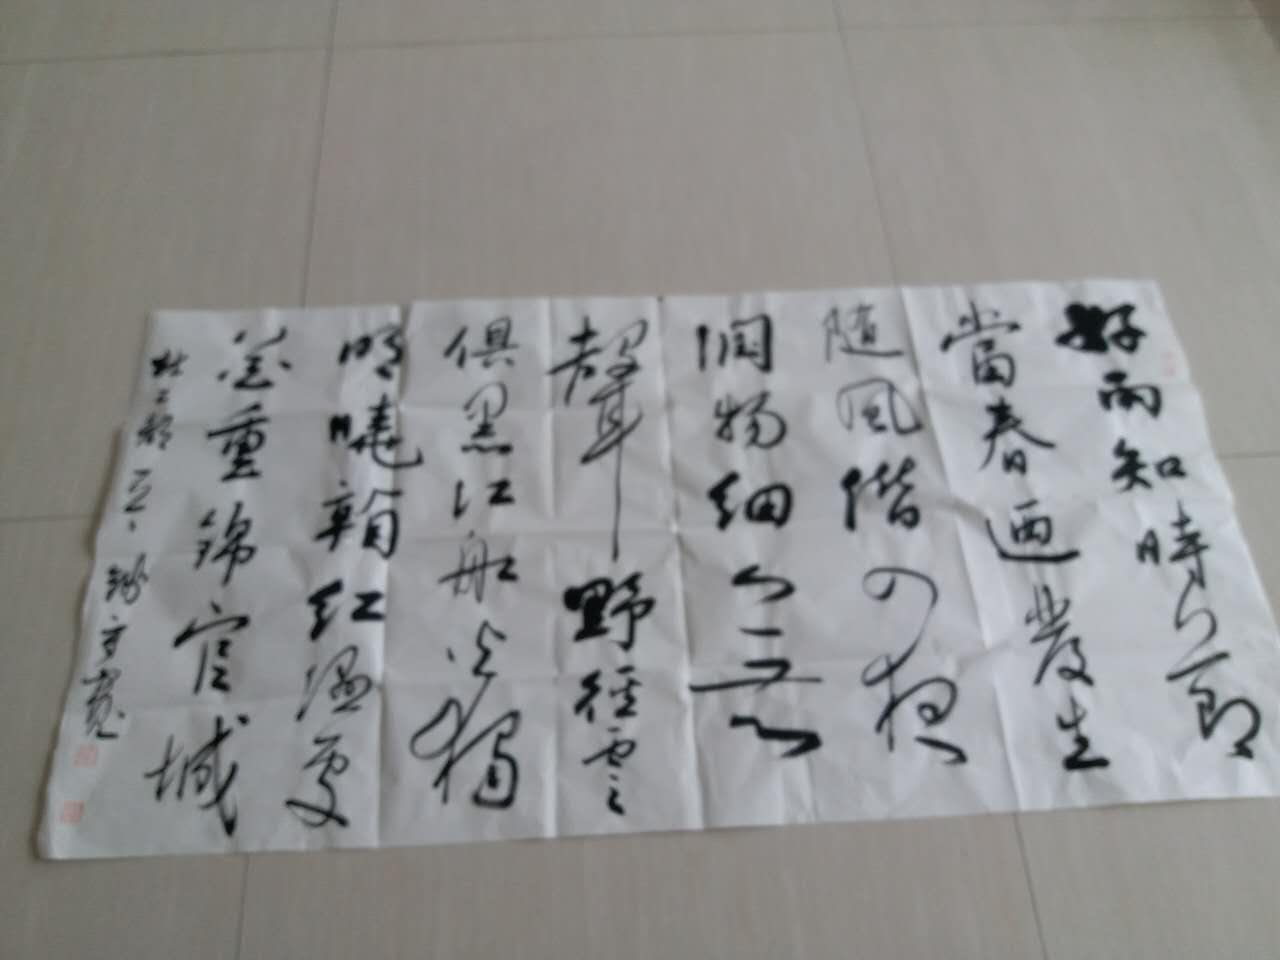 好雨知時節
當春迺發生
隨風潛入夜
潤物細無
聲野徑雲
俱黑江船火獨
明曉紅濕處
花重錦官城
杜工部